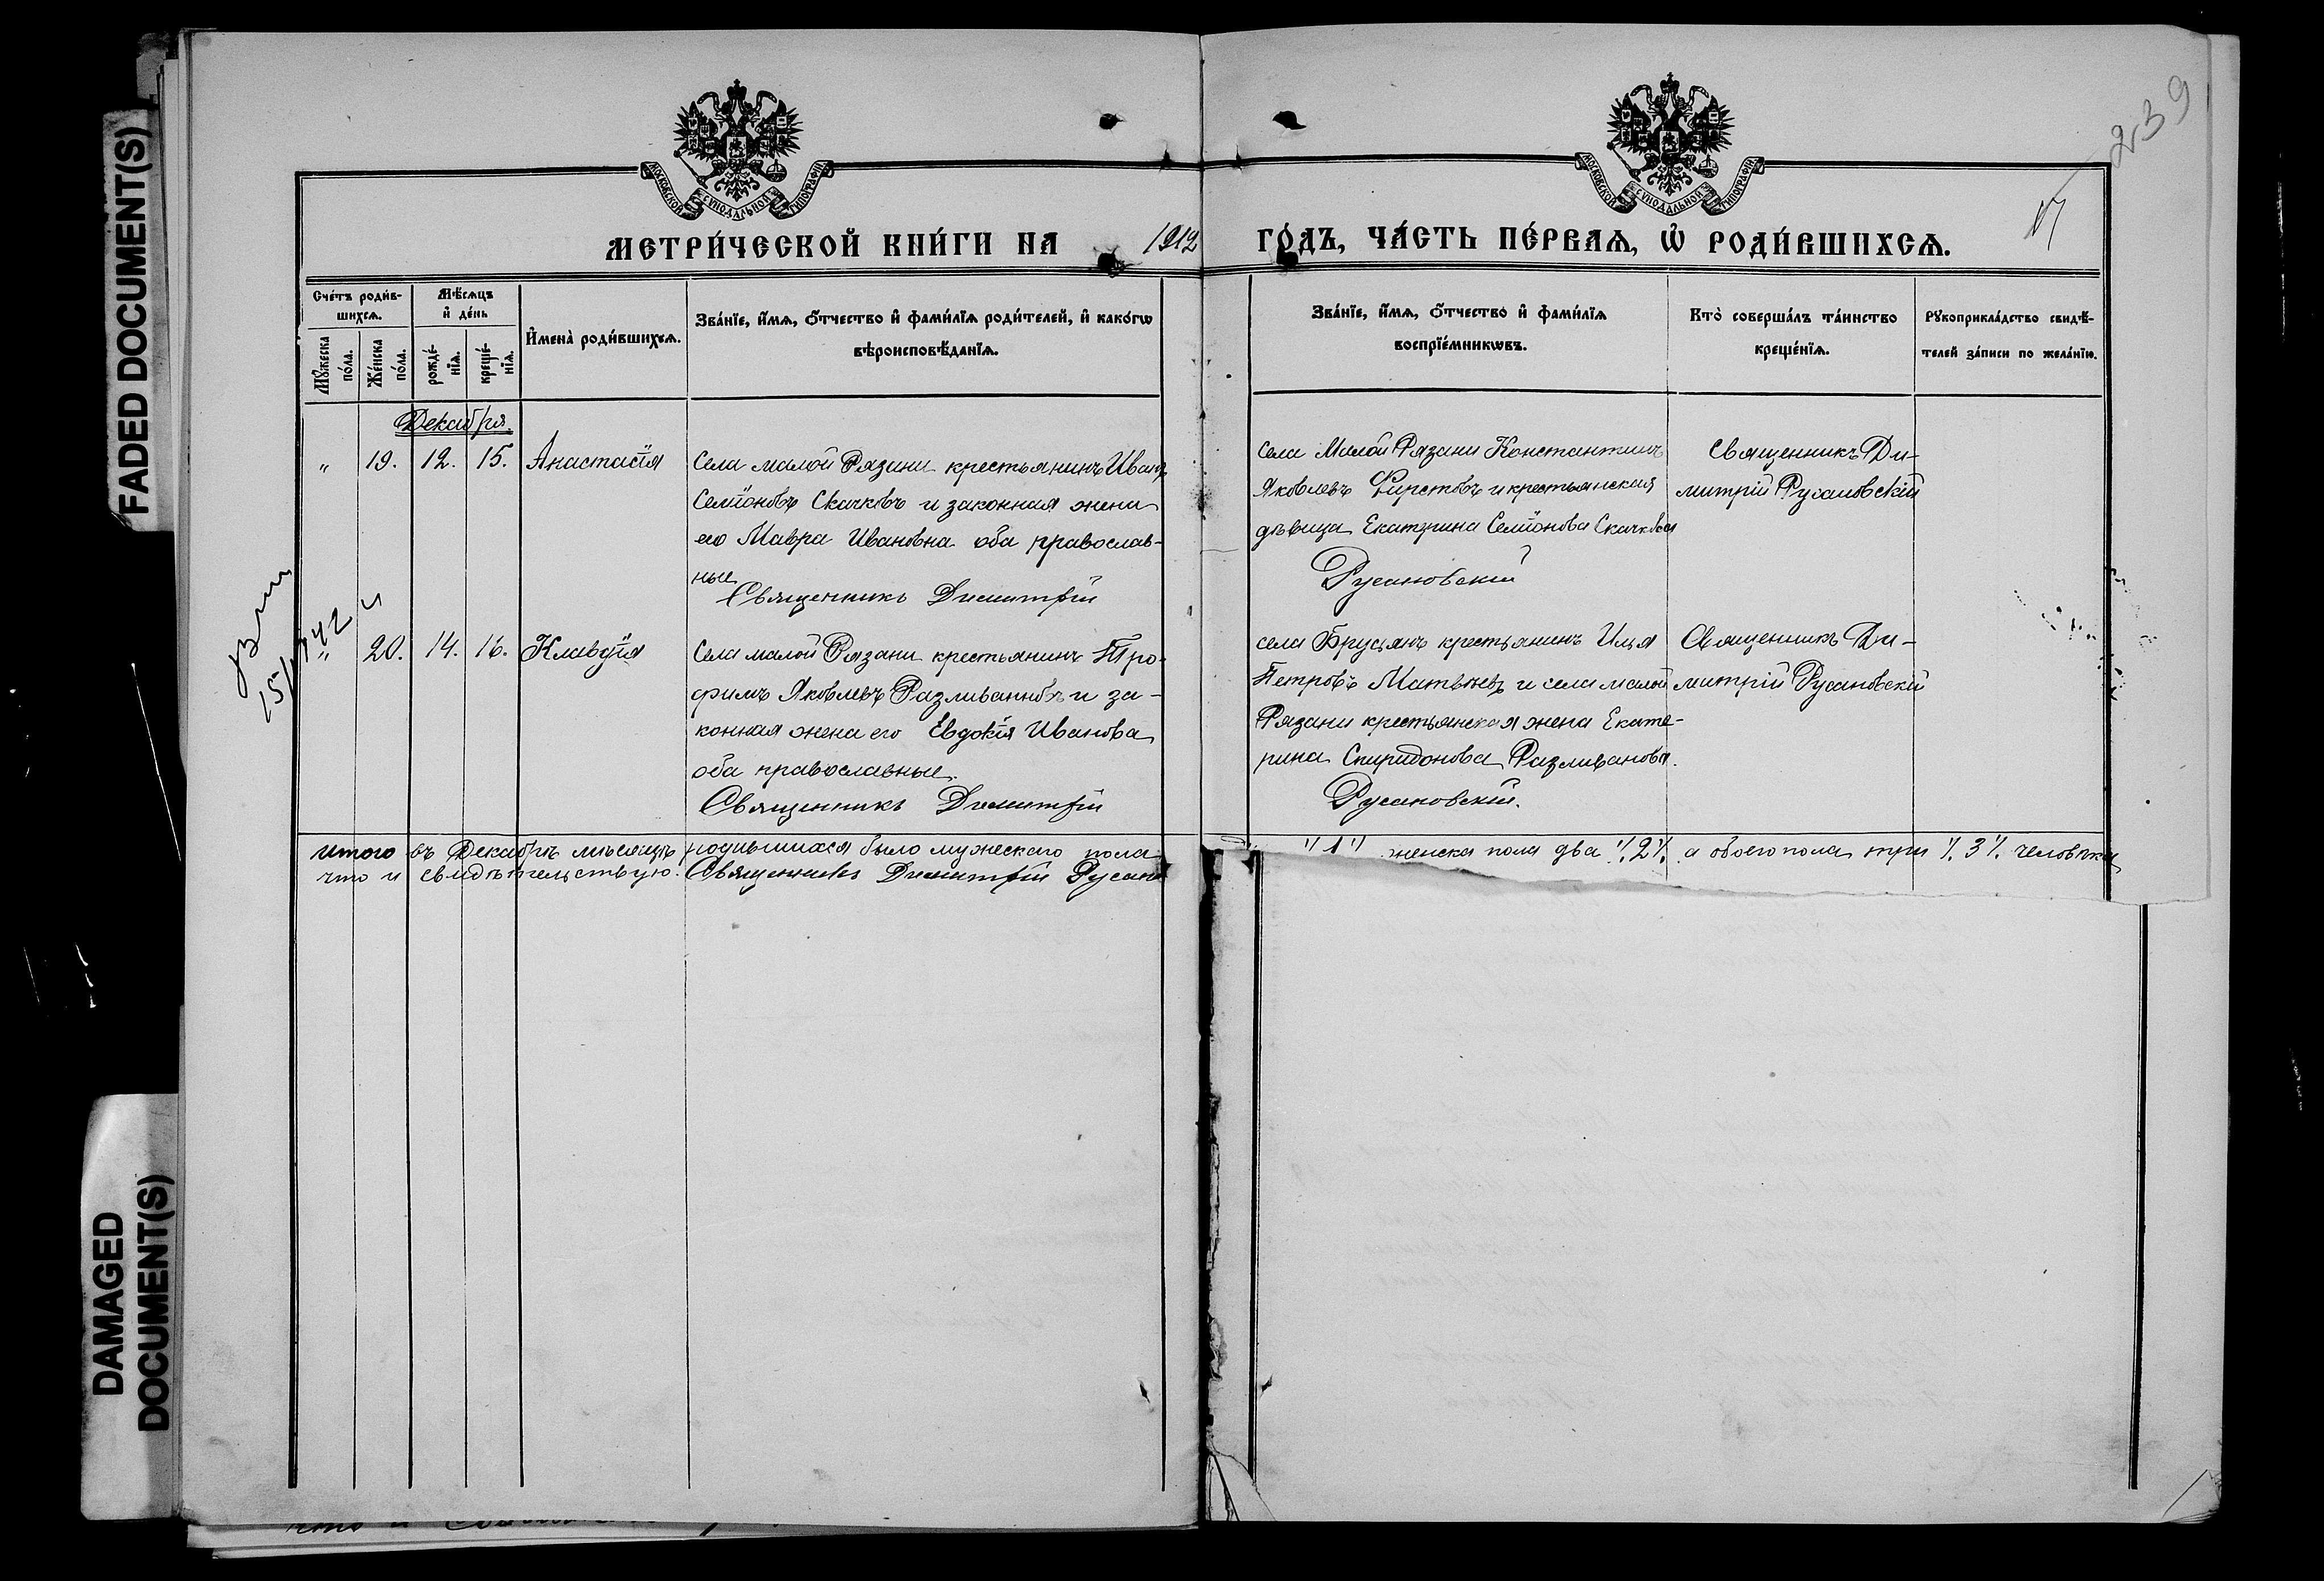 FADED DOCUMENT(S)
DAMAGED DOCUMENT(S)
239
17
МОСКОВСКОЙ СѴНОДАЛЬНОЙ ТИПОГРАФІИ
МОСКОВСКОЙ СѴНОДАЛЬНОЙ ТИПОГРАФІИ
МЕТРИ́ЧЕСКОЙ КНИ́ГИ НА 1912 ГО́ДЪ, ЧА́СТЬ ПЕ́РВАѦ, Ѡ҆ РОДИ́ВШИХСѦ.
Сче́тъ роди́в-
шихсѧ.
Мꙋ́жеска по́ла.
Же́нска по́ла.
Мѣ́сѧцъ
и҆ де́нь
рожде́-
нїѧ.
креще́-
нїѧ.
И҆мена̀ роди́вшихсѧ.
Зва́нїе, и҆́мѧ, ѻ҆́тчество и҆ фами́лїѧ роди́телей, и҆ како́гѡ
вѣроисповѣ́данїѧ.
Зва́нїе, и҆́мѧ, ѻ҆́тчество и҆ фами́лїѧ
воспрїе́мникѡвъ.
Кто̀ соверша́лъ та́инство
креще́нїѧ.
Рꙋкоприкла́дство свидѣ́-
телей за́писи по жела́нїю.
Декабря.
" 19. 12. 15. Анастасія
Села малой Рязани крестьянинъ Иванъ
Семіоновъ Скачковъ и законная жена
его Мавра Ивановна оба православ-
ные
Священникъ Димитрій
Села Малой Рязани Константинъ
Яковлевъ Фирстовъ и крестьянская
дѣвица Екатерина Семіонова Скачкова
Русановскій
Священникъ Ди-
митрій Русановскій
" 20. 14. 16. Клавдія
Села малой Рязани крестьянинъ Тро-
фимъ Яковлевъ Разливановъ и за-
конная жена его Евдокія Иванова
оба православные.
Священникъ Димитрій
села Брусянъ крестьянинъ Илья
Петровъ Матвѣевъ и села малой
Рязани крестьянская жена Екате-
рина Спиридонова Разливанова.
Русановскій.
Священникъ Ди-
митрій Русановскій
Итого въ Декабрѣ мѣсяцѣ родившихся было мужескаго пола "1" женска пола два "2", а обоего пола три "3" человѣка
что и свидѣтельствую. Священникъ Димитрій Русано